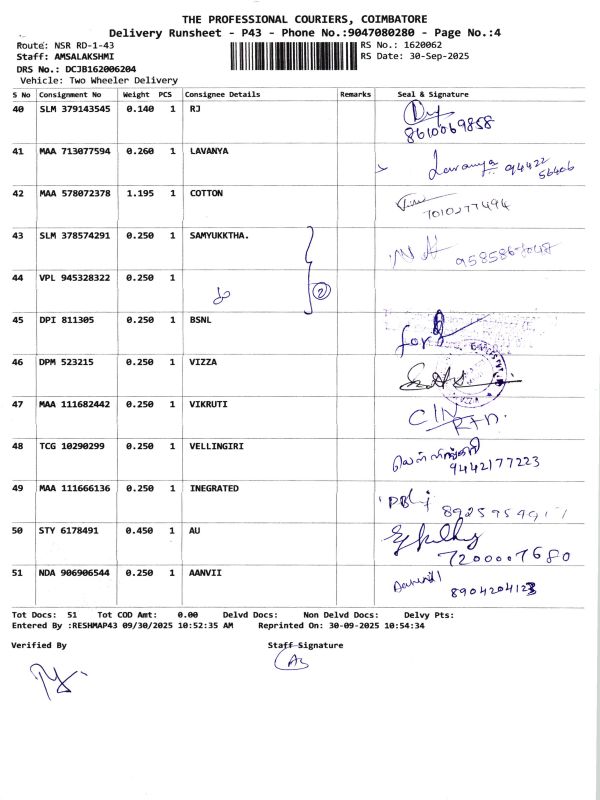 THE PROFESSIONAL COURIERS, COIMBATORE
Delivery Runsheet - P43 - Phone No.:9047080280 - Page No.:4
Route: NSR RD-1-43 RS No.: 1620062
Staff: AMSALAKSHMI RS Date: 30-Sep-2025
DRS No.: DCJB162006204
Vehicle: Two Wheeler Delivery
S No Consignment No Weight PCS Consignee Details Remarks Seal & Signature
40 SLM 379143545 0.140 1 RJ
8610069858
41 MAA 713077594 0.260 1 LAVANYA
Lavanya 94422
56406
42 MAA 578072378 1.195 1 COTTON
7010277494
43 SLM 378574291 0.250 1 SAMYUKKTHA.
44 VPL 945328322 0.250 1
2
45 DPI 811305 0.250 1 BSNL
for
46 DPM 523215 0.250 1 VIZZA
47 MAA 111682442 0.250 1 VIKRUTI
C/N
RTN.
48 TCG 10290299 0.250 1 VELLINGIRI
வெள்ளிங்கிரி
9442177223
49 MAA 111666136 0.250 1 INEGRATED
50 STY 6178491 0.450 1 AU
7200007680
51 NDA 906906544 0.250 1 AANVII
8904204123
Tot Docs: 51 Tot COD Amt: 0.00 Delvd Docs: Non Delvd Docs: Delvy Pts:
Entered By :RESHMAP43 09/30/2025 10:52:35 AM Reprinted On: 30-09-2025 10:54:34
Verified By Staff Signature